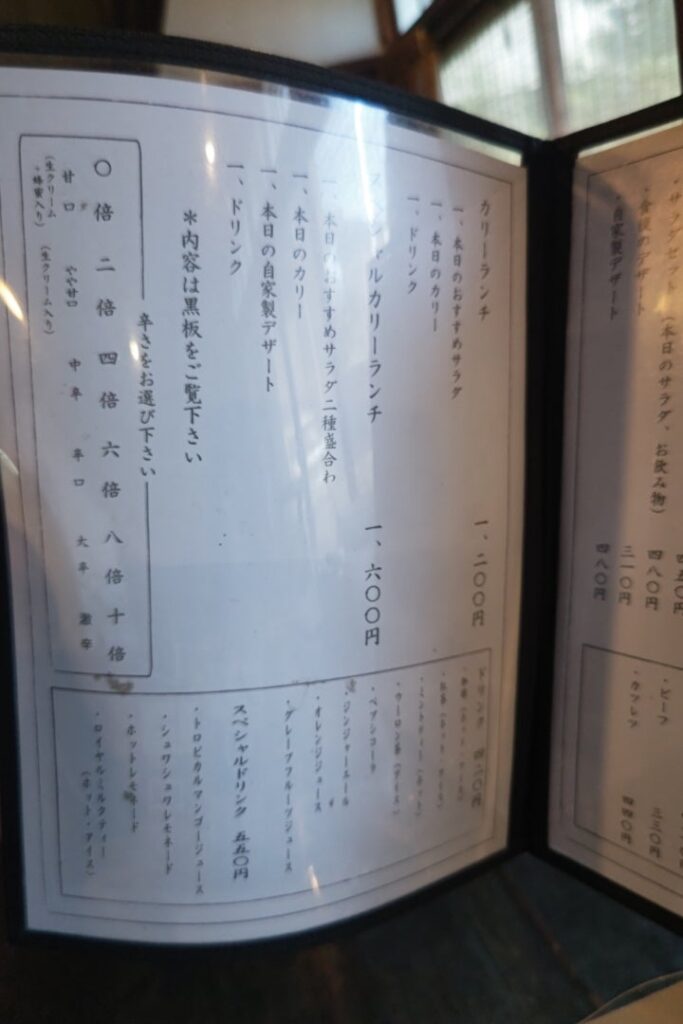 ・サラダセット（本日のサラダ、お飲み物）
四八〇円
・食後のデザート
三一〇円
・自家製デザート
四八〇円
・ビーフ
三三〇円
四四〇円
カリーランチ　一、二〇〇円
一、本日のおすすめサラダ
一、本日のカリー
一、ドリンク
スペシャルカリーランチ　一、六〇〇円
一、本日のおすすめサラダ二種盛合わ
一、本日のカリー
一、本日の自家製デザート
一、ドリンク
＊内容は黒板をご覧下さい
辛さをお選び下さい
〇倍　二倍　四倍　六倍　八倍　十倍
甘口　やや甘口　中辛　辛口　大辛　激辛
（生クリーム・蜂蜜入り）　（生クリーム入り）
ドリンク　四二〇円
・珈琲（ホット・アイス）
・紅茶（ホット・アイス）
・ミントティー（ホット）
・ウーロン茶（アイス）
・ペプシコーラ
・ジンジャーエール
・オレンジジュース
・グレープフルーツジュース
スペシャルドリンク　五五〇円
・トロピカルマンゴージュース
・シュワシュワレモネード
・ホットレモネード
・ロイヤルミルクティー
（ホット・アイス）